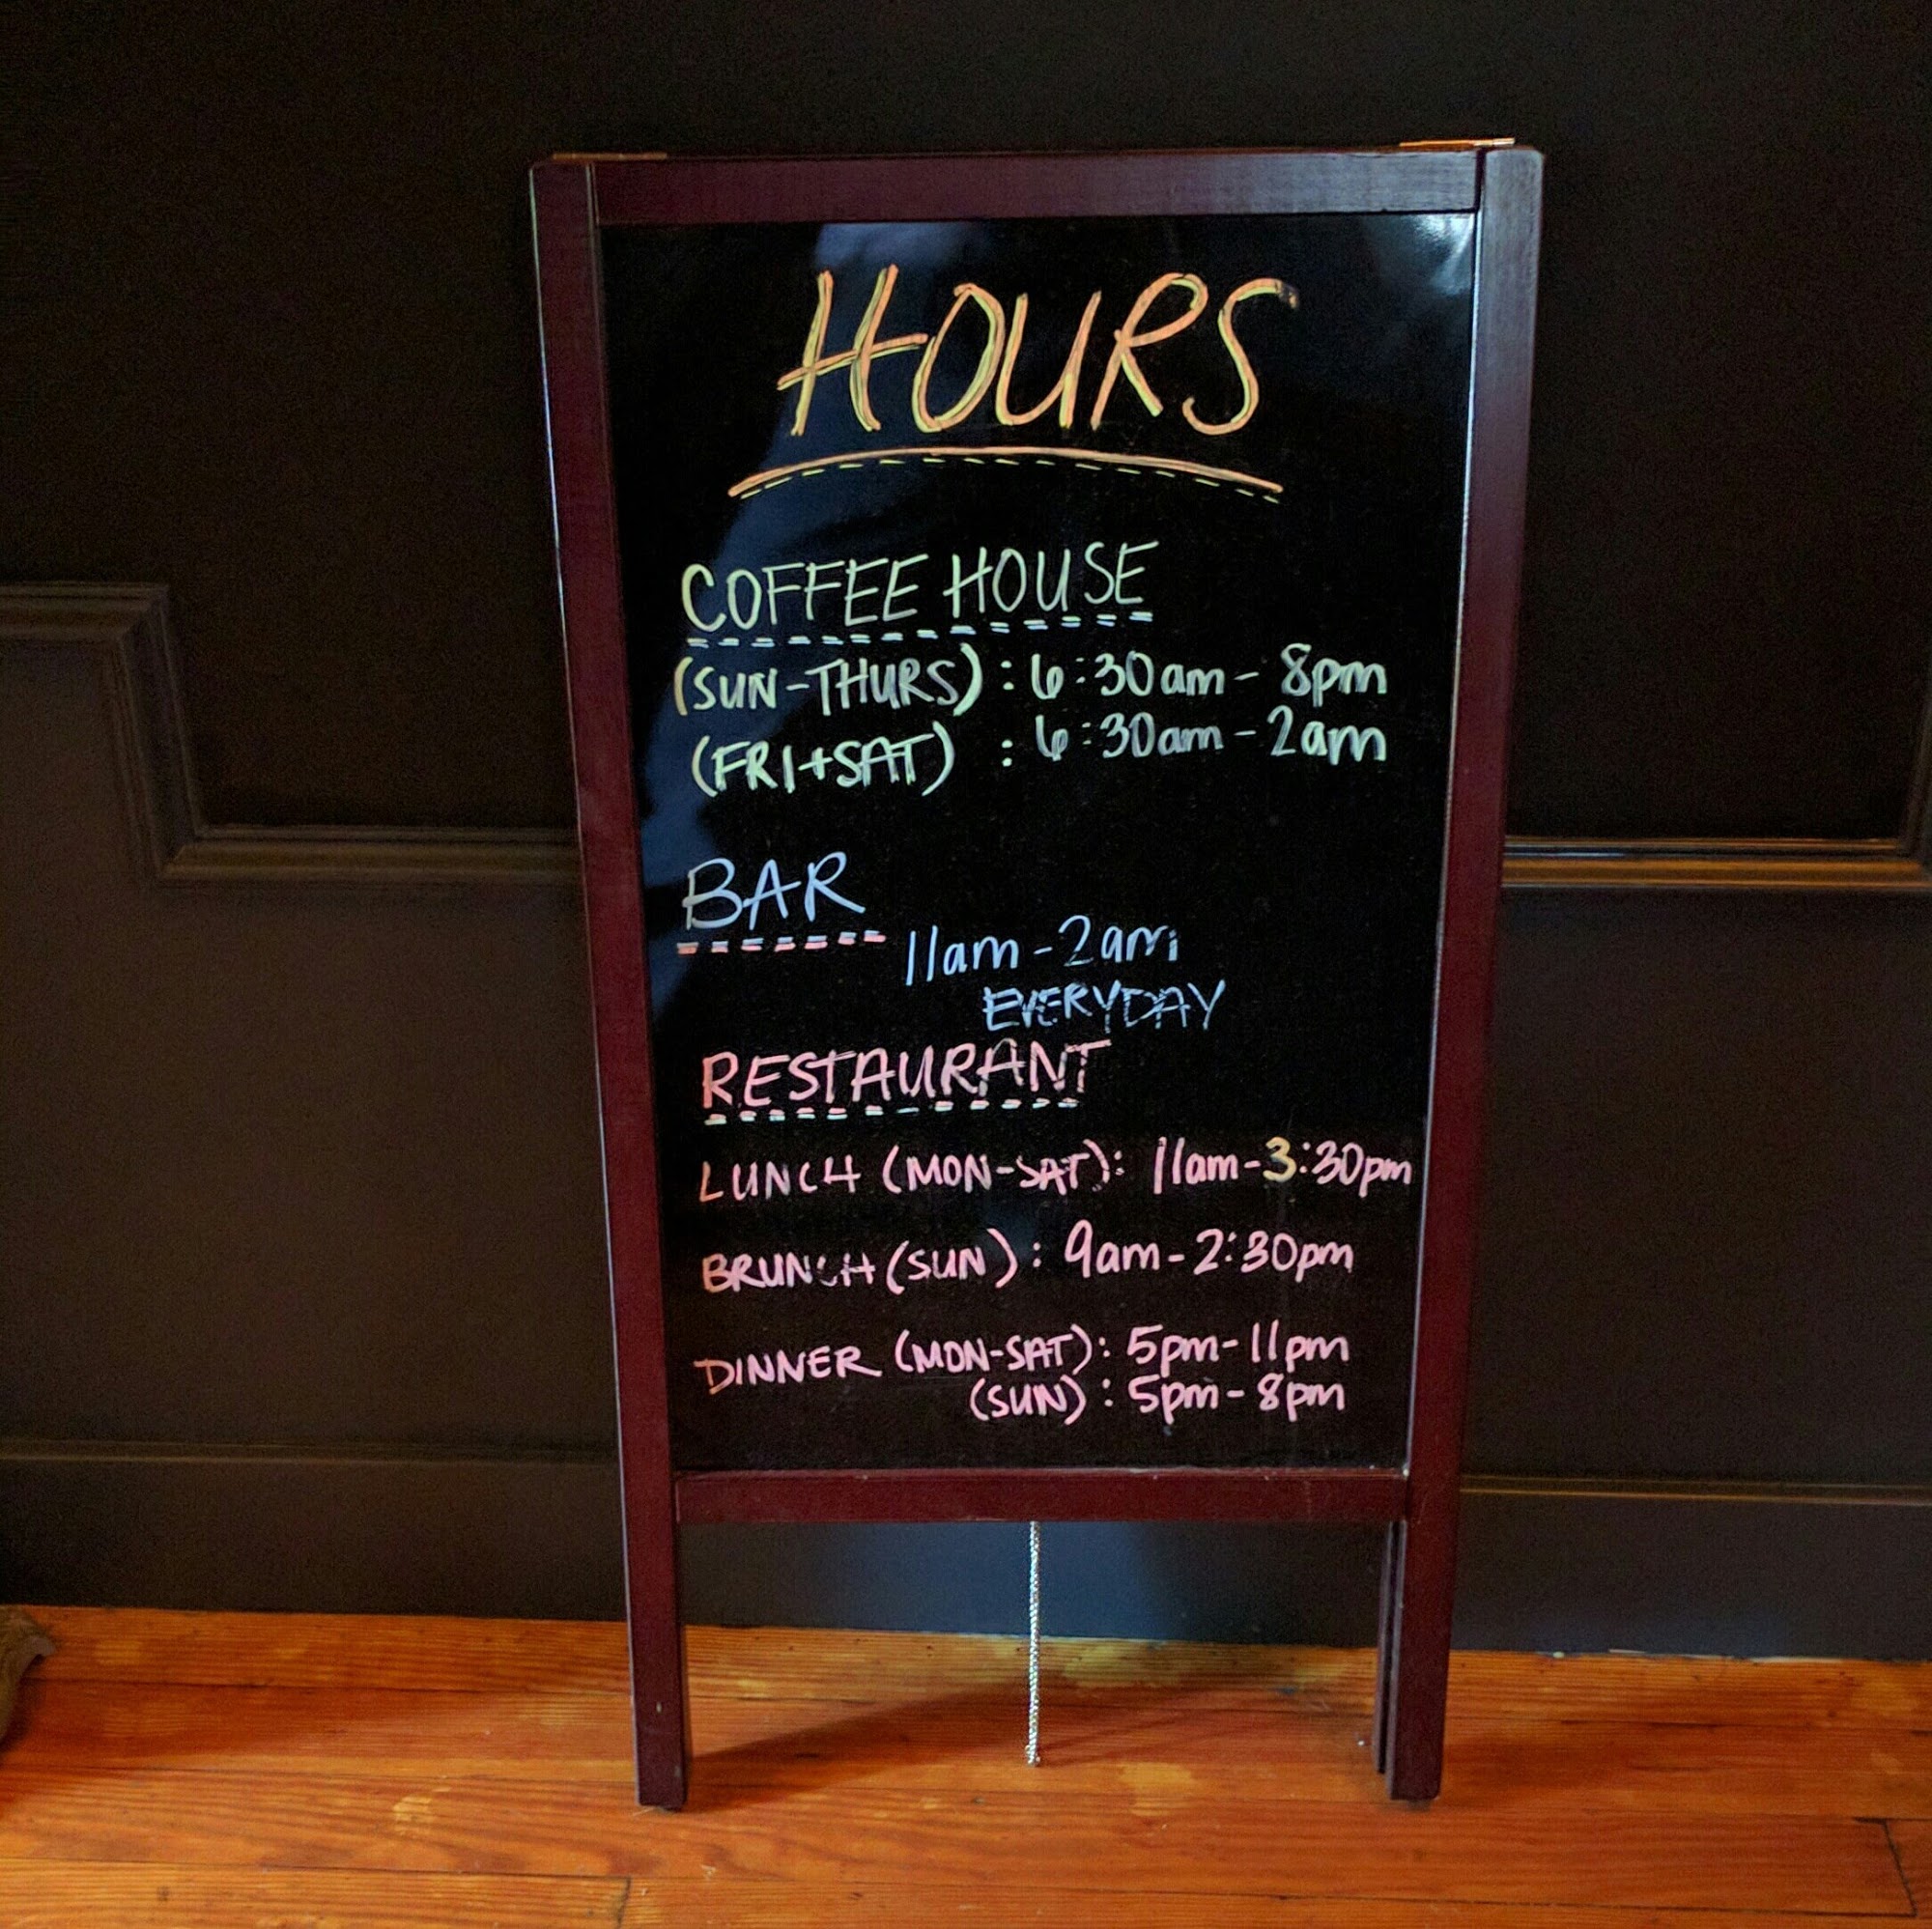 HOURS
COFFEE HOUSE
(SUN-THURS) : 6:30am - 8pm
(FRI+SAT) : 6:30am - 2am
BAR
11am - 2am
EVERYDAY
RESTAURANT
LUNCH (MON-SAT): 11am-3:30pm
BRUNCH (SUN) : 9am - 2:30pm
DINNER (MON-SAT): 5pm-11pm
(SUN) : 5pm - 8pm